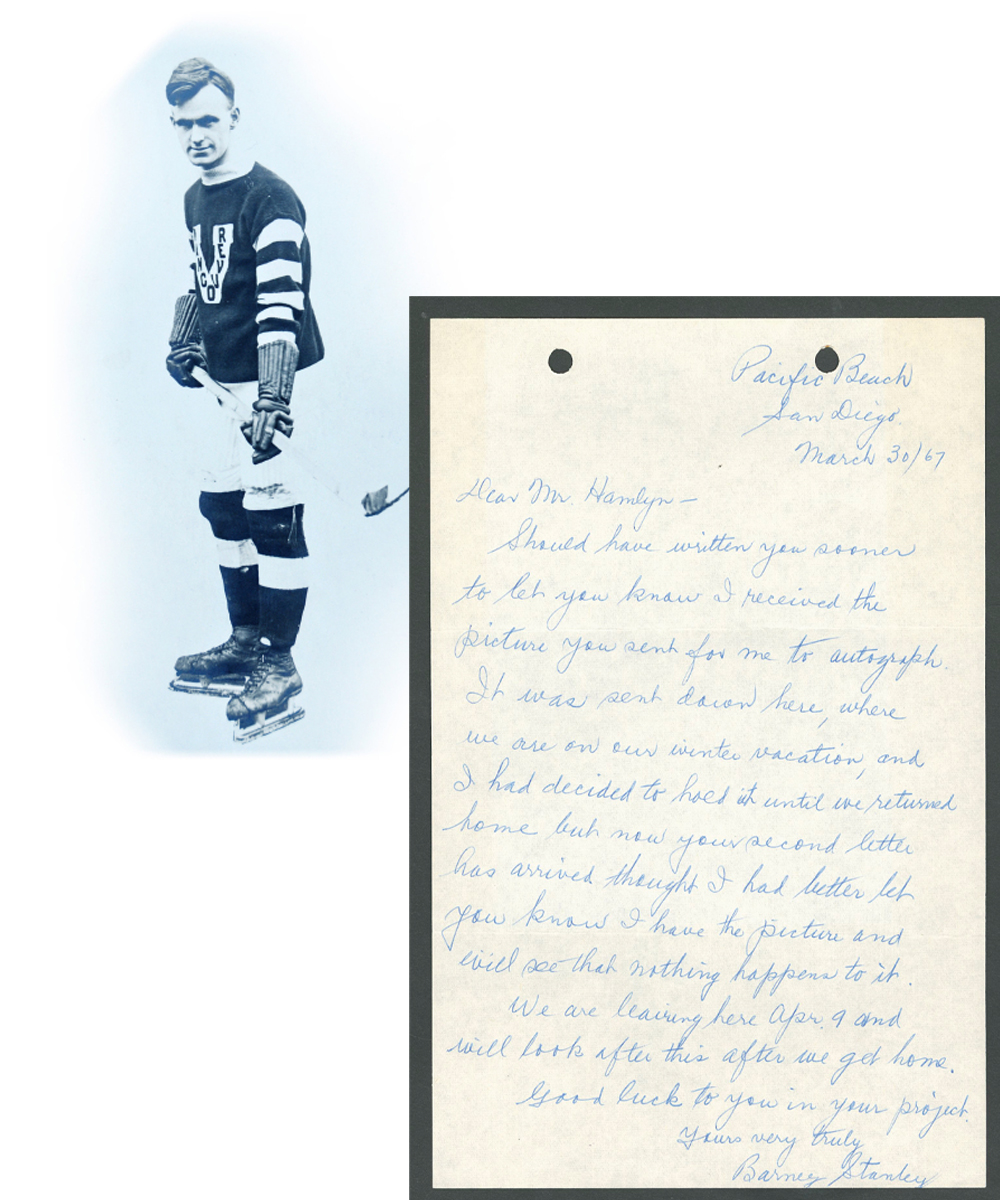 VANCOUVER
Pacific Beach
San Diego.
March 30/67
Dear Mr. Hamlyn –
Should have written you sooner
to let you know I received the
picture you sent for me to autograph.
It was sent down here, where
we are on our winter vacation, and
I had decided to hold it until we returned
home but now your second letter
has arrived thought I had better let
you know I have the picture and
will see that nothing happens to it.
We are leaving here Apr. 9 and
will look after this after we get home.
Good luck to you in your project.
Yours very truly
Barney Stanley